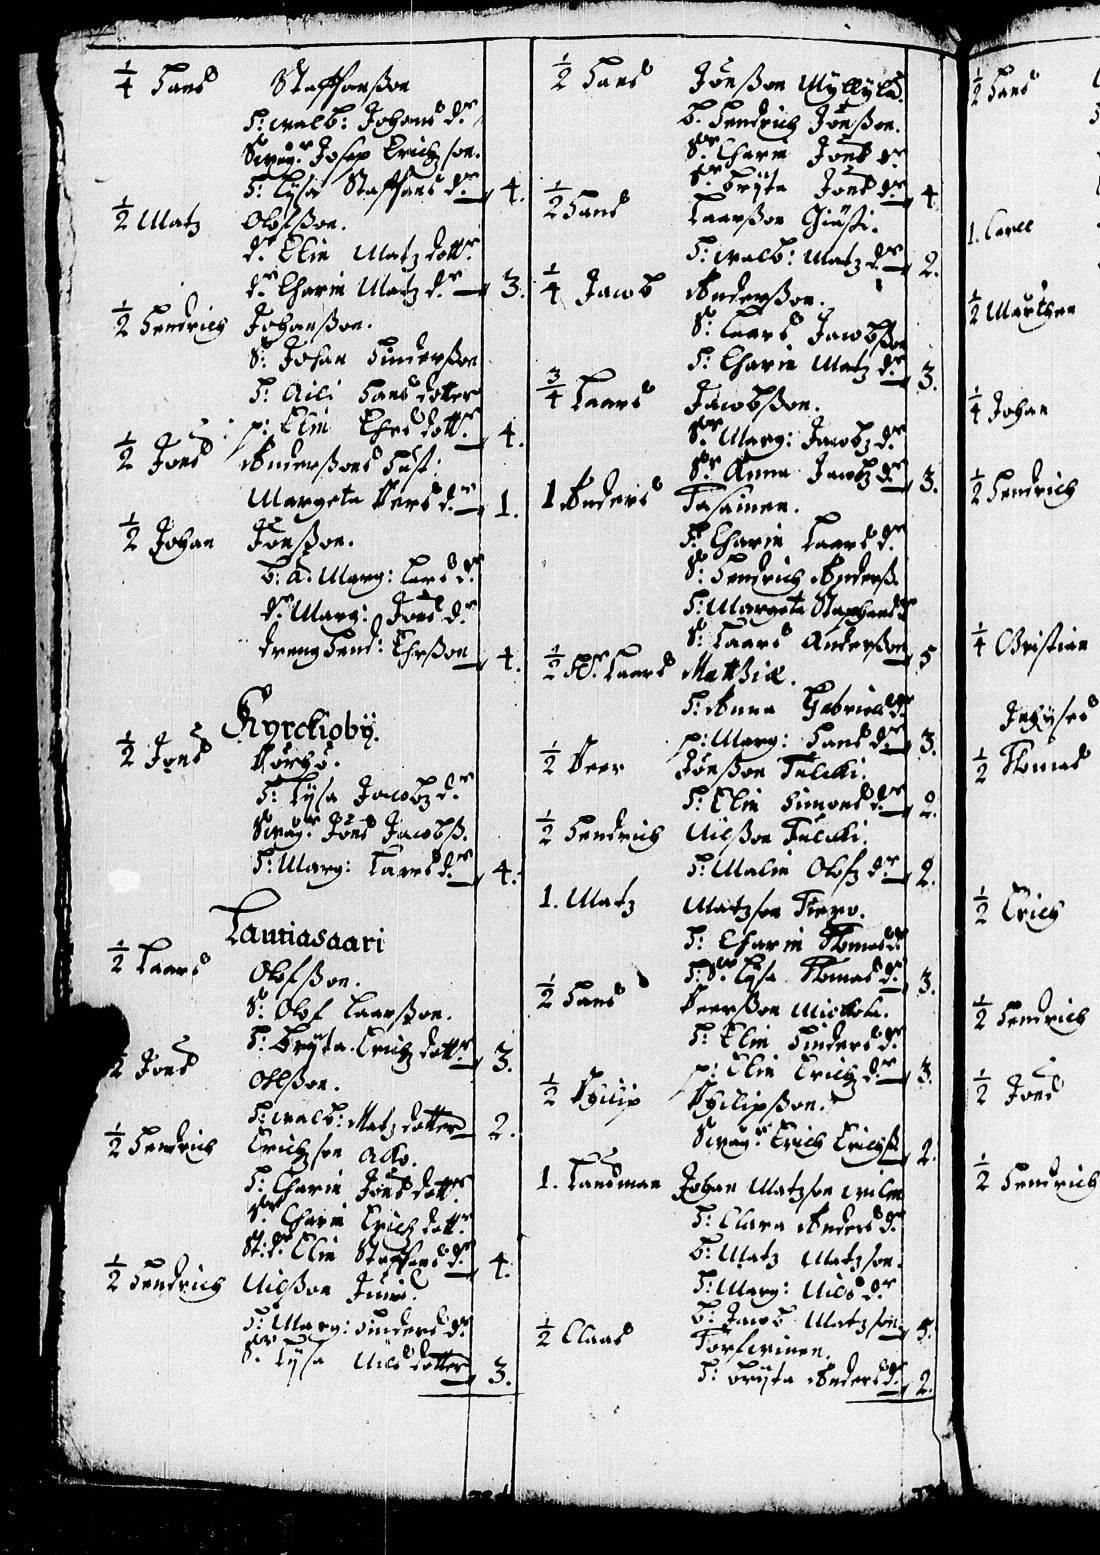 1/4 Hans Staffansson
H: walb: Johans dr
Swåg:r Josep Erichsson.
H: Lysa Staffans dr 4.
1/2 Matz Olofsson.
dr Elin Matz dottr
dr Charin Matz dr 3.
1/2 Hendrich Johansson.
S: Johan Hindersson
H: Aili Hans dotter
p: Elin Ehrs dottr 4.
1/2 Jöns Anderssons Hust:
Margeta Pers dr 1.
1/2 Johan Jönsson.
H: A: Marg: Lars dr
dr Marg: Jöns dr
dreng Hend: Ehrsson 4.
Kyrckioby.
1/2 Jöns
H: Lysa Jacobz dr
Swåg:r Jöns Jacobss.
H: Marg: Lares dr 4.
Lamiasaari
1/2 Laars Olofsson.
S: Olof Laarsson.
H: Bryta Erichz dottr 3.
1/2 Jöns Olsson.
H: walb: Matz dotter 2.
1/2 Hendrich Erichsson Acko.
H: Charin Jöns dottr
Sr Charin Erichz dottr
St: dr Elin Staffans dr 4.
1/2 Hendrich Nilsson Juni
H: Marg: Hinders dr
Sr Lysa Nils dotter 3.
1/2 Hans Jönsson Myllylä.
b. Hendrich Jönsson.
Sr Charin Jöns dr
Sr Bryta Jöns dr 4
1/2 Hans Laarsson Giästi.
H: walb: Matz dr 2.
1/4 Jacob Andersson.
S: Laars Jacobsson
H: Charin Matz dr 3.
3/4 Laars Jacobsson.
Sr Marg: Jacobz dr
Sr Anna Jacobz dr 3.
1 Anders Tasainen.
H: Charin Laars dr
S: Hendrich Anderss.
H: Margeta Staphans dr
S: Laars Andersson 5
1/2 Laars Matthiæ.
H: Anna Gabriels dr
p: Marg: Hans dr 3.
1/2 Peer Jönsson Tulcki.
H: Elin Simons dr 2.
1/2 Hendrich Nilsson Tulcki.
H: Malin Olofz dr 2.
1. Matz Matzson Tiero.
H: Charin Thomas dr
H: Sr Lysa Thomas dr 3.
1/2 Hans Peersson Mickola.
H: Elin Hinders dr
p: Elin Erichz dr 3.
1/2 Philip Philipsson.
Swåg:r Erich Erichss 2.
1. Landman Johan Matzson
H: Clara Anders dr
b: Matz Matzson.
H: Marg: Nils dr
b: Jacob Matzson 5.
1/2 Claas Torfwinen.
H: Bryta Anders dr 2.
1/2 Hans
1. Carll
1/2 Mårthen
1/4 Johan
1/2 Hendrich
1/4 Christian
1/2 Thomas
1/2 Erich
1/2 Hendrich
1/2 Jöns
1/2 Hendrich